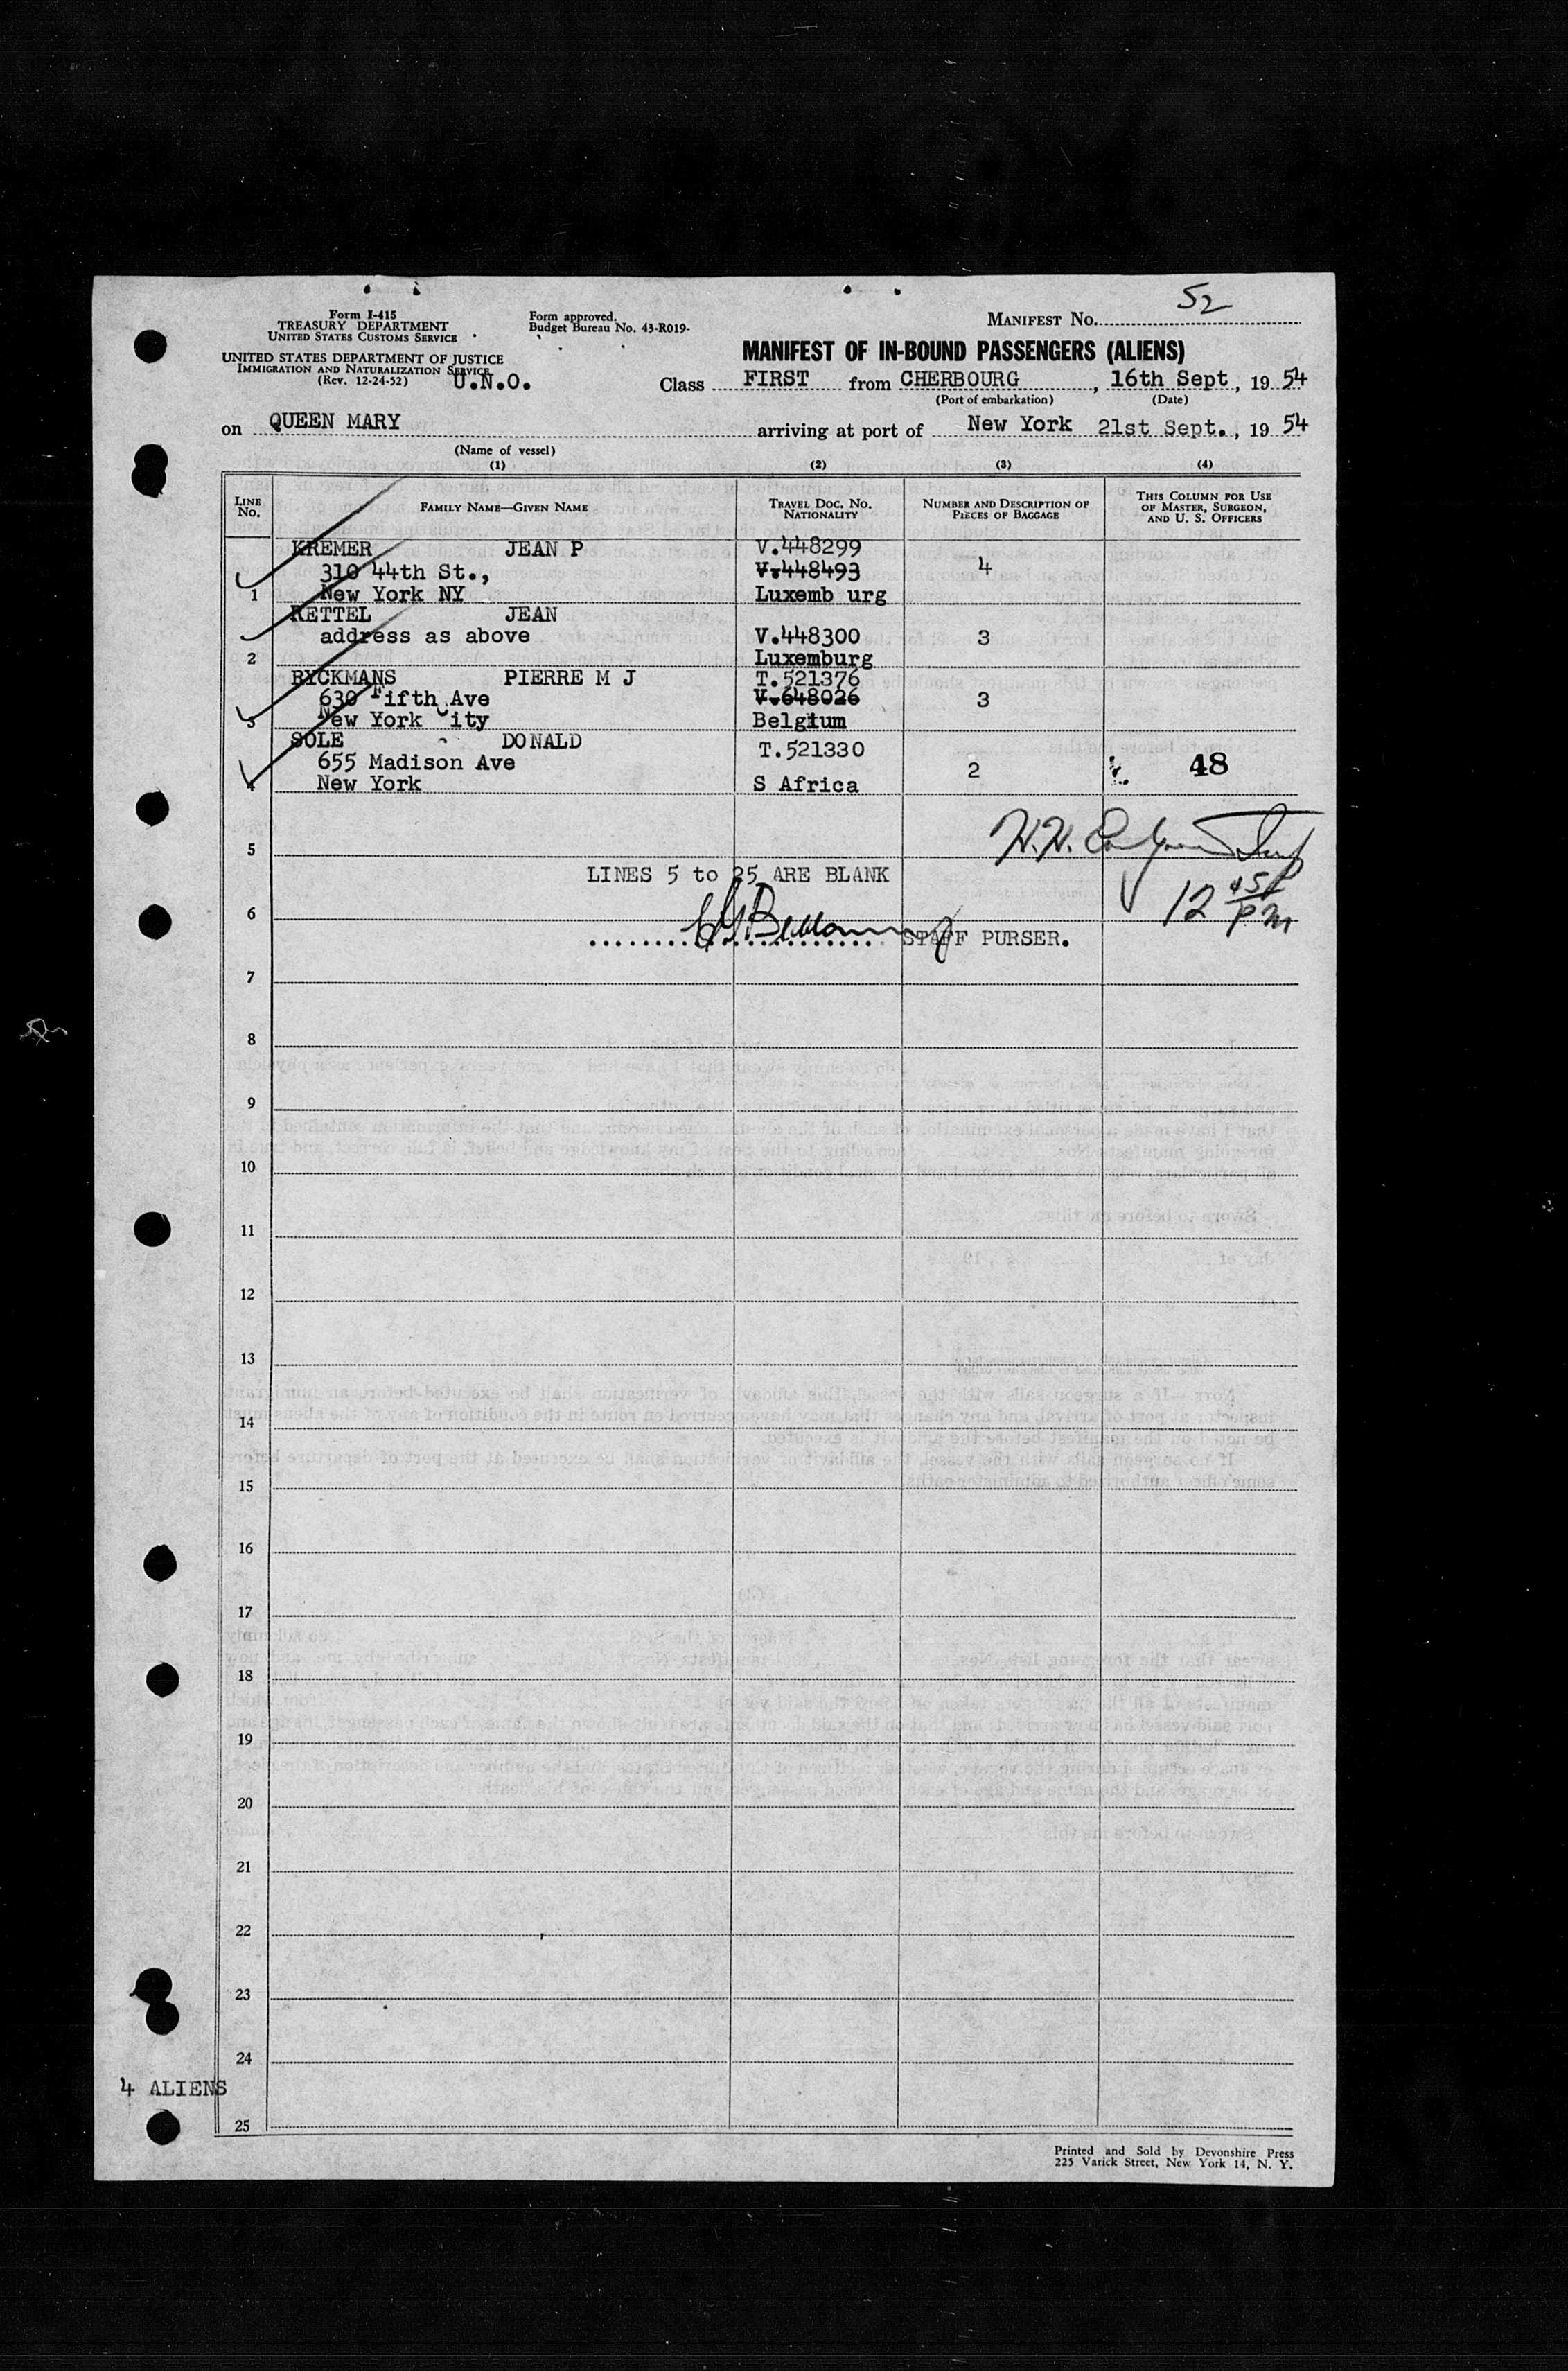 52
Form I-415
TREASURY DEPARTMENT
UNITED STATES CUSTOMS SERVICE
Form approved.
Budget Bureau No. 43-R019-
MANIFEST No.
UNITED STATES DEPARTMENT OF JUSTICE
IMMIGRATION AND NATURALIZATION SERVICE
(Rev. 12-24-52)
U.N.O.
MANIFEST OF IN-BOUND PASSENGERS (ALIENS)
Class FIRST from CHERBOURG, 16th Sept, 19 54
(Port of embarkation) (Date)
on QUEEN MARY arriving at port of New York 21st Sept., 19 54
(Name of vessel)
(1) (2) (3) (4)
LINE No. FAMILY NAME—GIVEN NAME TRAVEL DOC. NO. NATIONALITY NUMBER AND DESCRIPTION OF PIECES OF BAGGAGE THIS COLUMN FOR USE OF MASTER, SURGEON, AND U. S. OFFICERS
KREMER JEAN P V.448299
310 44th St., V.448493 4
1 New York NY Luxemb urg
RETTEL JEAN
address as above V.448300 3
2 Luxemburg
RYCKMANS PIERRE M J T.521376
630 Fifth Ave V.648026 3
3 New York City Belgium
SOLE DONALD T.521330
655 Madison Ave 2 48
4 New York S Africa
5
LINES 5 to 25 ARE BLANK
12 45 pm
6
STAFF PURSER.
7
8
9
10
11
12
13
14
15
16
17
18
19
20
21
22
23
24
4 ALIENS
25
Printed and Sold by Devonshire Press
225 Varick Street, New York 14, N. Y.